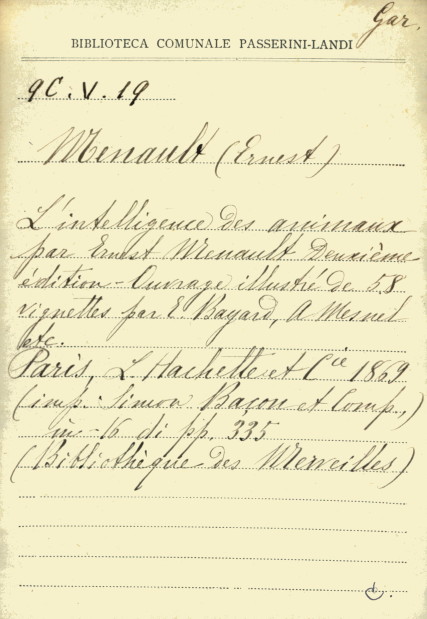 Gar.
BIBLIOTECA COMUNALE PASSERINI-LANDI
9C.V.19
Menault (Ernest)
L'intelligence des animaux
par Ernest Menault Deuxième
édition - Ouvrage illustré de 58
vignettes par E. Bayard, A Mesnel
etc.
Paris, L. Hachette et Cie 1869
(imp. Simon Baçon et Comp.,)
in-16 di pp. 335
(Bibliothèque des Merveilles)